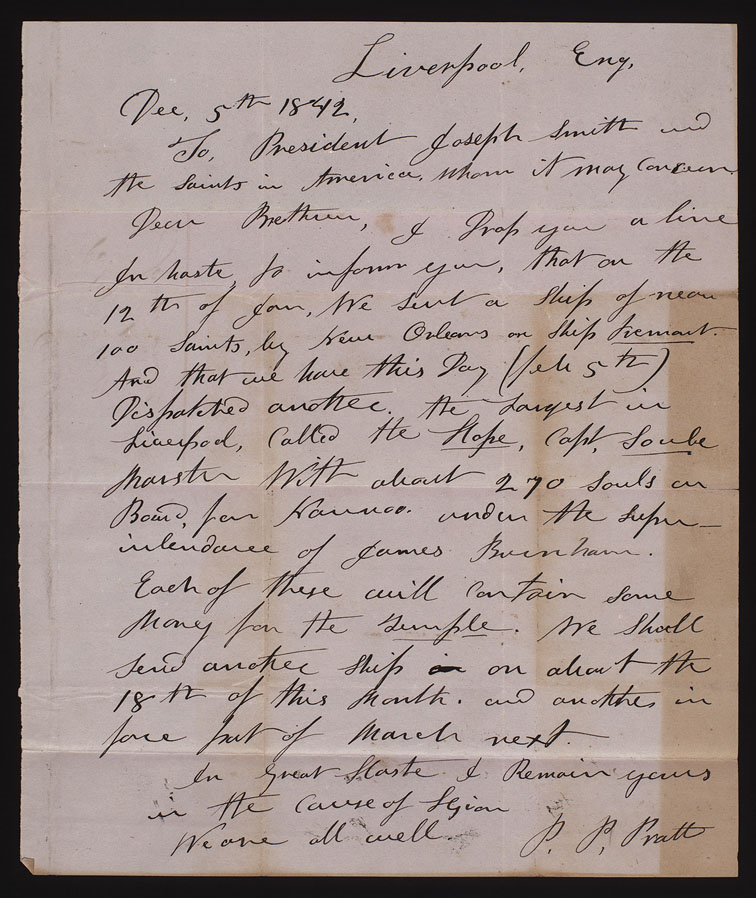 Liverpool, Eng,
Dec, 5th 1842,
To, President Joseph Smith and
the Saints in America, whom it may Concern.
Dear Brethren, I Drop you a line
In haste, to inform you, that on the
12th of Jan, We sent a Ship of near
100 Saints, by New Orleans on Ship Fremont.
And that we have this Day (feb 5th)
Dispatched another. the Largest in
Liverpool, Called the Hope, Capt, Soule
Marster With about 270 Souls on
Board, for Nauvoo. under the Super-
intendance of James Burnham.
Each of these will Contain some
Money for the Temple. We Shall
Send another Ship on about the
18th of this Month. and another in
fore of March next.
In Great Haste I Remain yours
in the Cause of
We are all well. P. P, Pratt